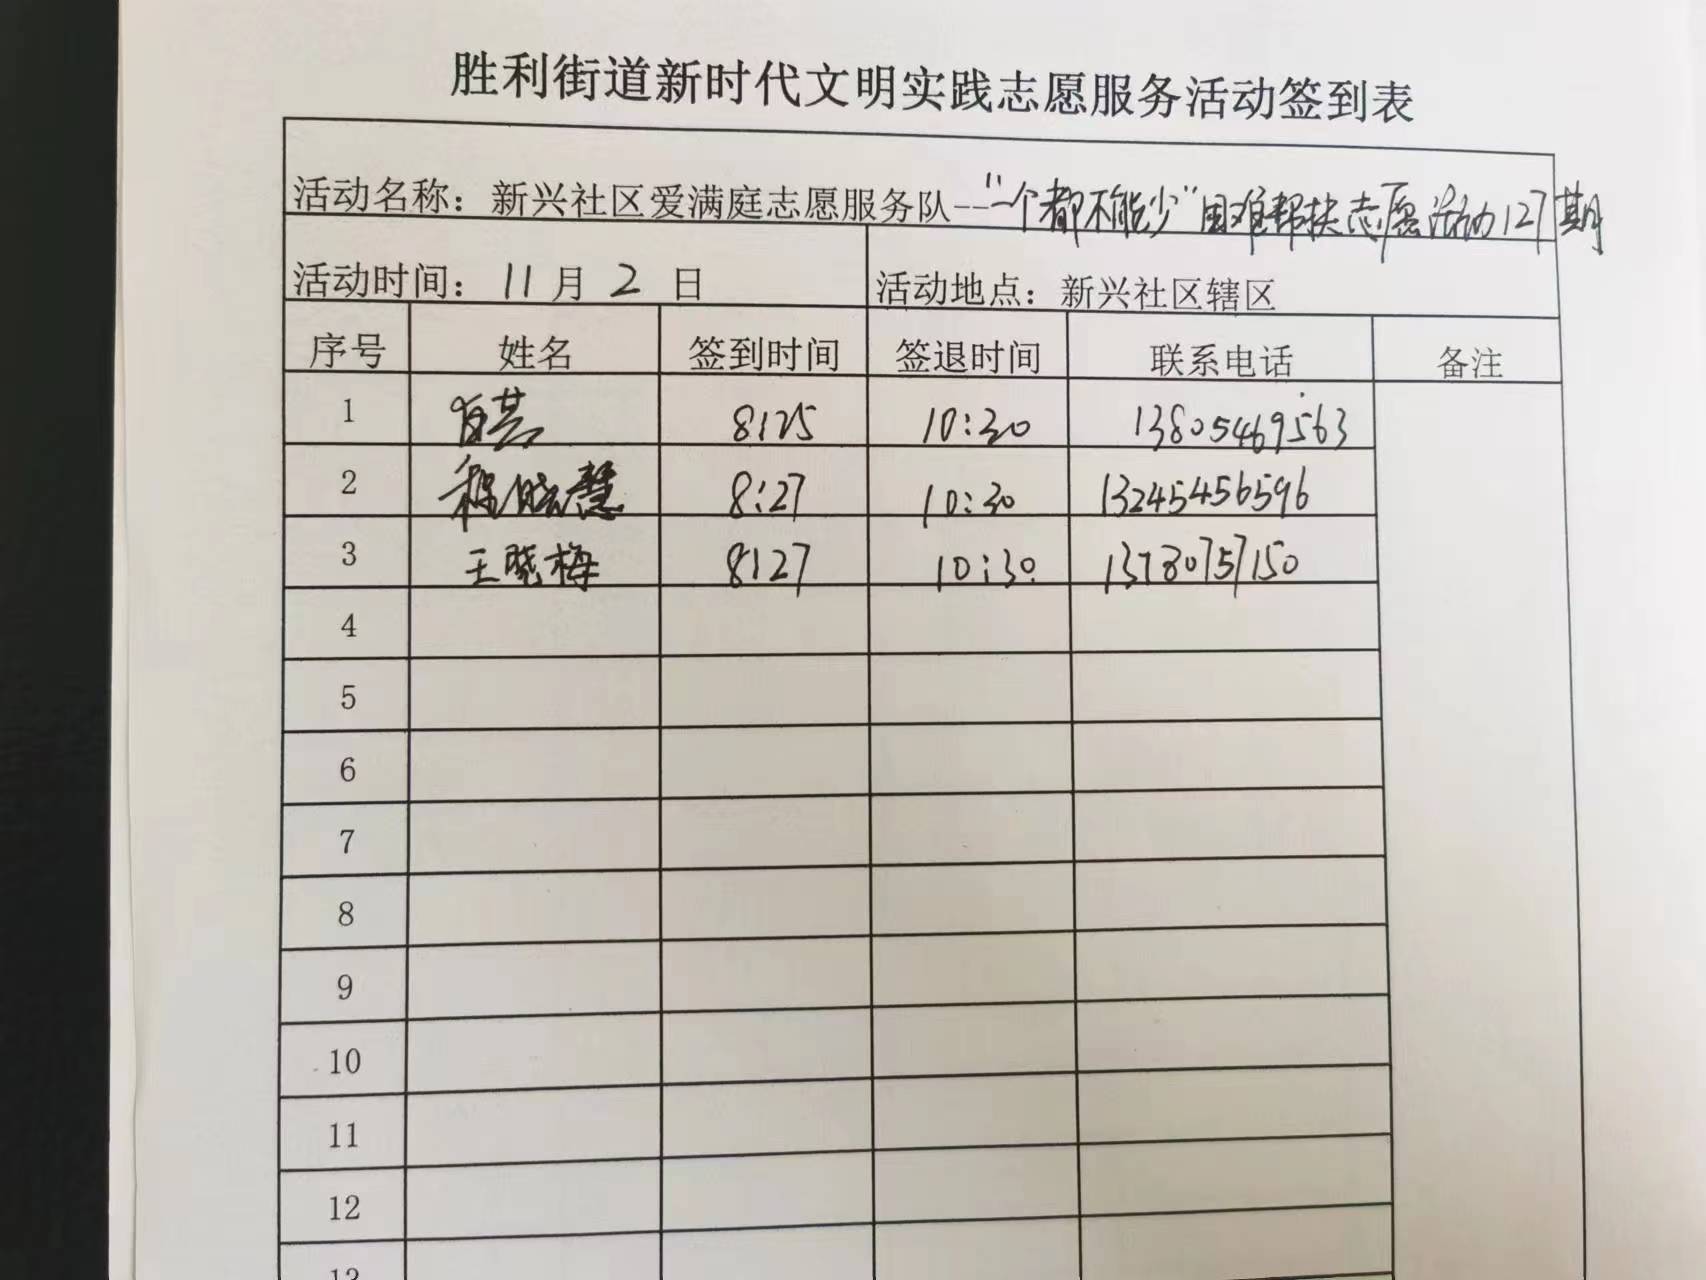 胜利街道新时代文明实践志愿服务活动签到表
活动名称：新兴社区爱满庭志愿服务队--"一个都不能少"困难帮扶志愿活动127期
活动时间：11月2日 活动地点：新兴社区辖区
序号 姓名 签到时间 签退时间 联系电话 备注
1 8:25 10:30 13805469563
2 晓慧 8:27 10:30 13245456596
3 王晓梅 8:27 10:30 13780757150
4
5
6
7
8
9
10
11
12
13